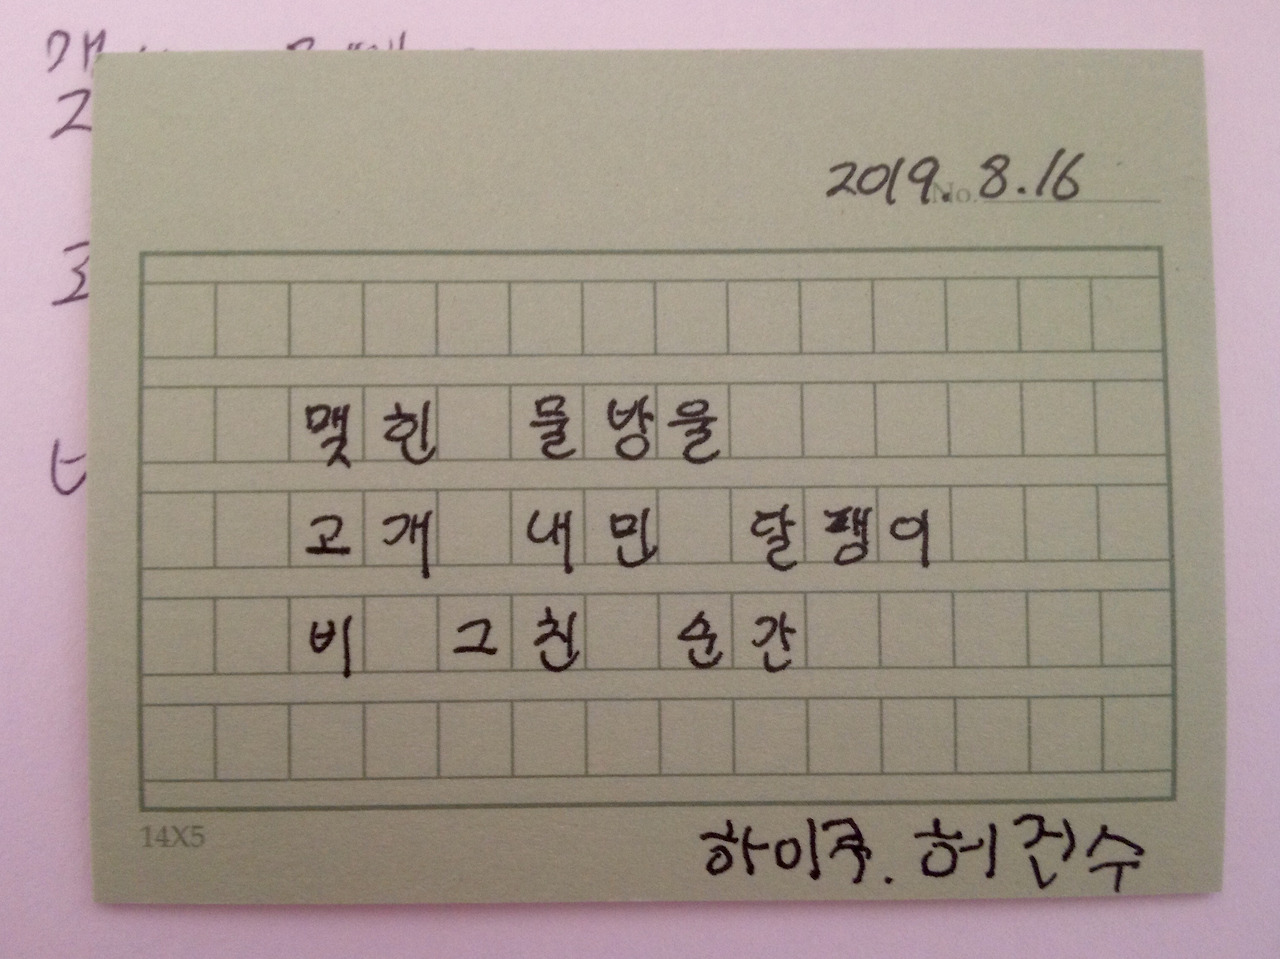 2019. 8. 16
No.
맺힌 물방울
고개 내민 달팽이
비 그친 순간
14X5
하이쿠. 허건수